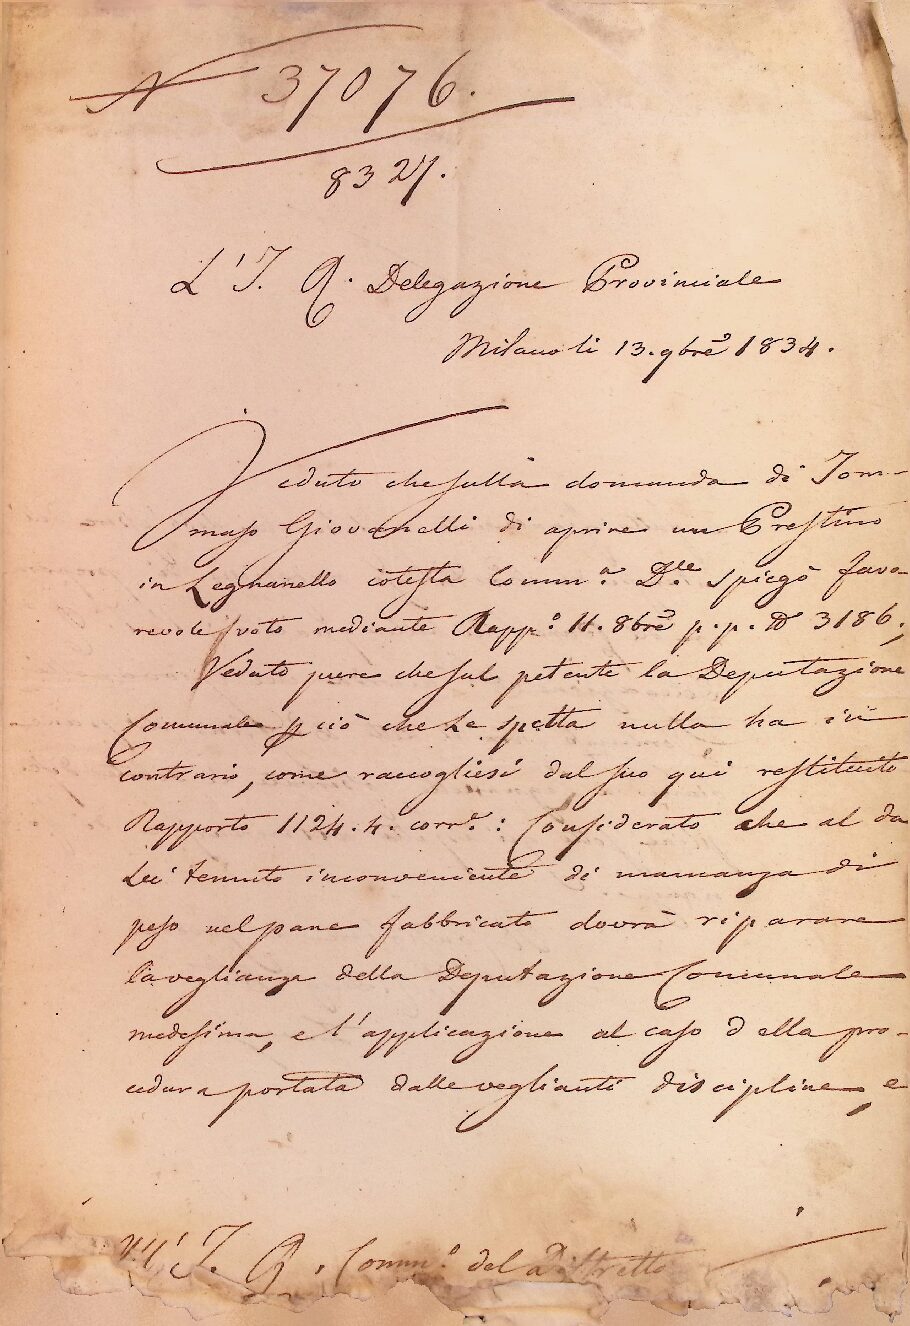 N 37076.
8327.
L'I. R. Delegazione Provinciale
Milano li 13. 9bre 1834.
Veduto che sulla domanda di Tom-
maso Giovanelli di aprire un Prestino
in Legnanello cotesta Comm.a D.le spiegò favo-
revole voto mediante Rapp.o 11. 8bre p.p. N 3186.;
Veduto pure che sul petente la Deputazione
Comunale p ciò che le spetta nulla ha in
contrario, come raccogliesi dal suo qui restituito
Rapporto 1124. 4. corr.e: Considerato che al da
Lei temuto inconveniente di mancanza di
peso nel pane fabbricato dovrà riparare
la veglianza della Deputazione Comunale
medesima, e l'applicazione al caso della pro-
cedura portata dalle veglianti discipline, e
All'I. R. Comm.o del Distretto